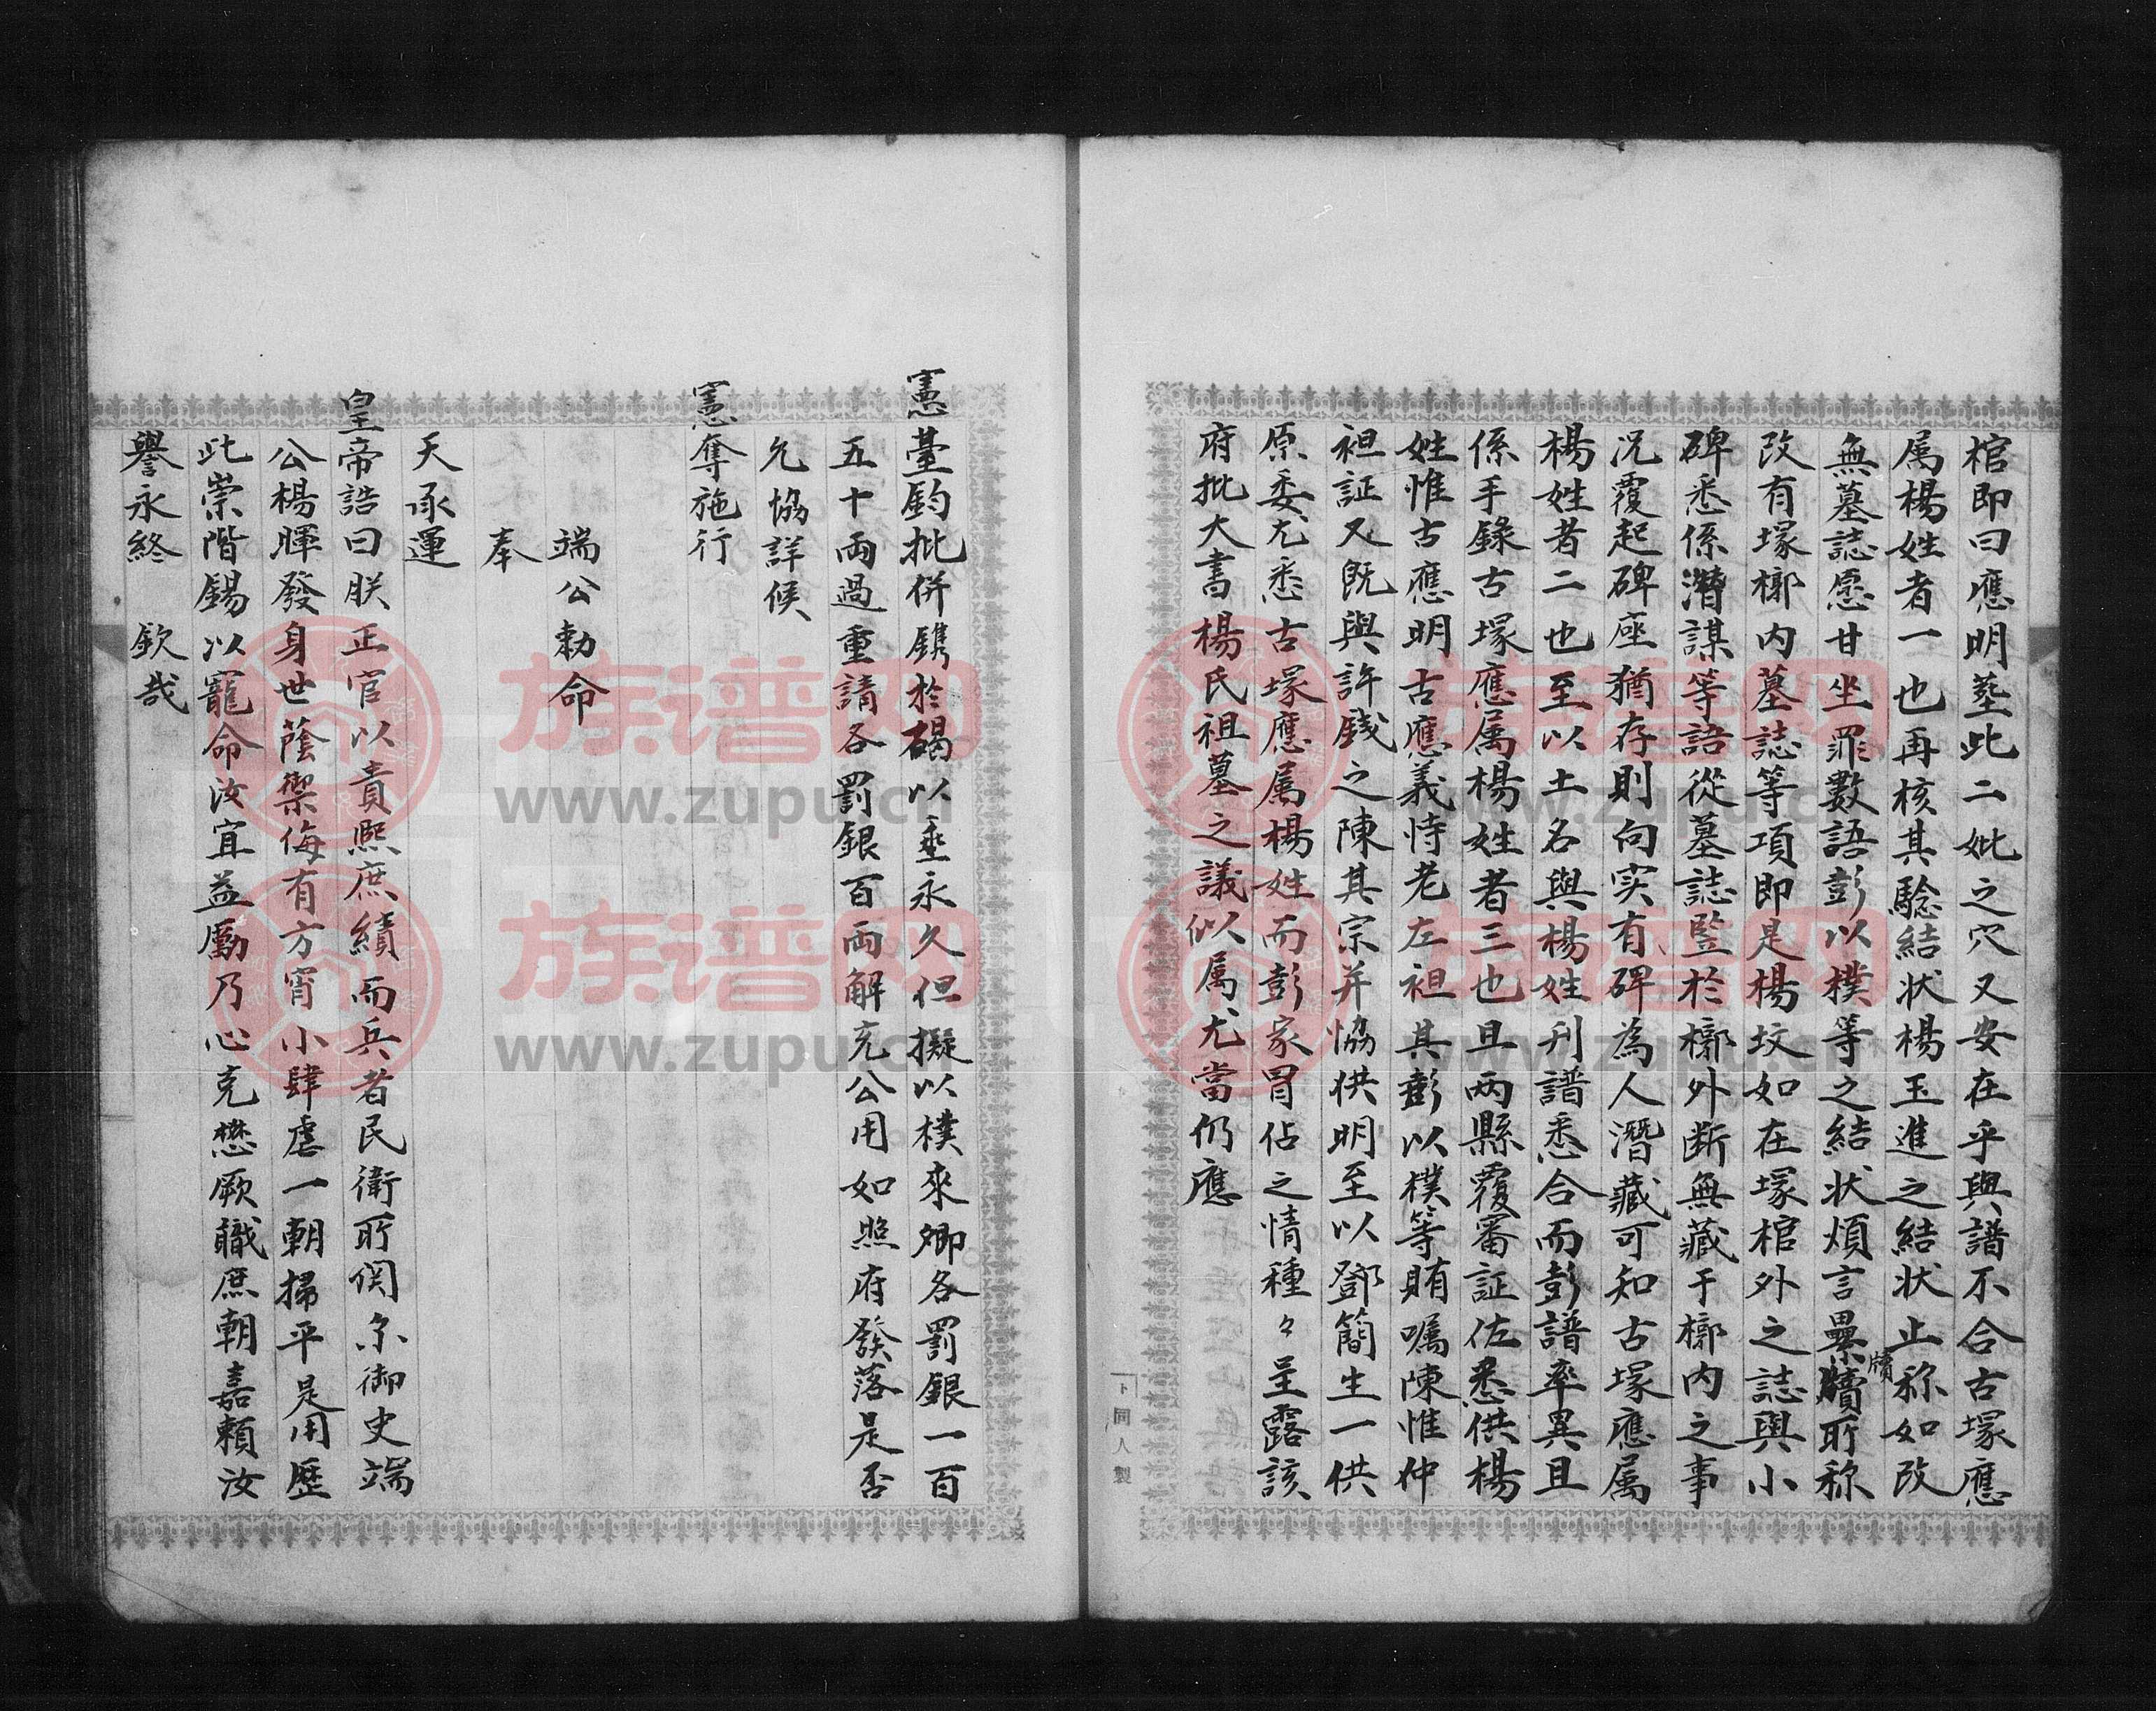 棺即曰應明塟此二妣之穴又安在乎與譜不合古塚應
属楊姓者一也再核其騐結状楊玉進之結状止称如改
無墓誌愿甘坐罪數語彭以樸等之結状煩言壘牘所称
牘
改有塚槨内墓誌等項即是楊坟如在塚棺外之誌與小
碑悉係潛謀等語從墓誌監於槨外断無藏于槨内之事
况覆起碑座猶存則向实有碑為人潛藏可知古塚應属
楊姓者二也至以土名與楊姓刋譜悉合而彭譜率異且
係手錄古塚應属楊姓者三也且两縣覆審証佐悉供楊
姓惟古應明古應義恃老左袒其彭以樸等賄嘱陳惟仲
袒証又既與許錢之陳其宗并協供明至以鄧簡生一供
原委尤悉古塚應属楊姓而彭家冒佔之情種々呈露該
府批大書楊氏祖墓之議似属尤當仍應
憲臺鈞批併鐫於碣以垂永久但擬以樸來卿各罰銀一百
五十両過重請各罰銀百両解充公用如照府發落是否
允協詳候
憲奪施行
端公勅命
奉
天承運
皇帝誥曰朕正官以責熙庶績而兵者民衛所関尔御史端
公楊暉發身世蔭禦侮有方宵小肆虐一朝掃平是用歷
此崇階錫以寵命汝宜益勵乃心克懋厥職庶朝嘉賴汝
譽永終 欽哉
卜同人製
族谱网
www.zupu.cn
族谱网
www.zupu.cn
族谱网
www.zupu.cn
族谱网
www.zupu.cn